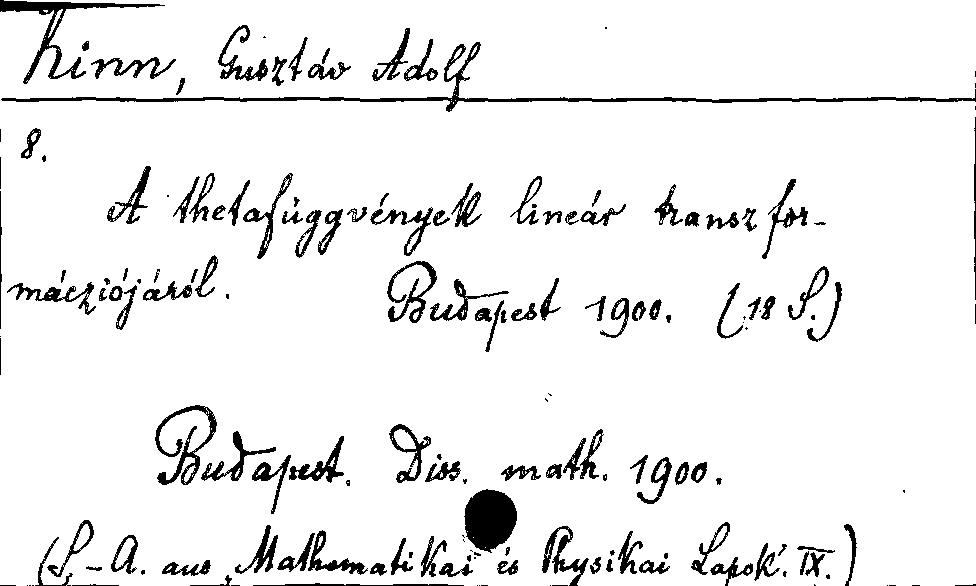 Kinn, Gusztáv Adolf
8.
A thetafüggvények lineár transzfor-
mácziójáról.
Budapest 1900. (18 S.)
Budapest. Diss. math. 1900.
(S.-A. aus „Mathematikai és Physikai Lapok". IX.)